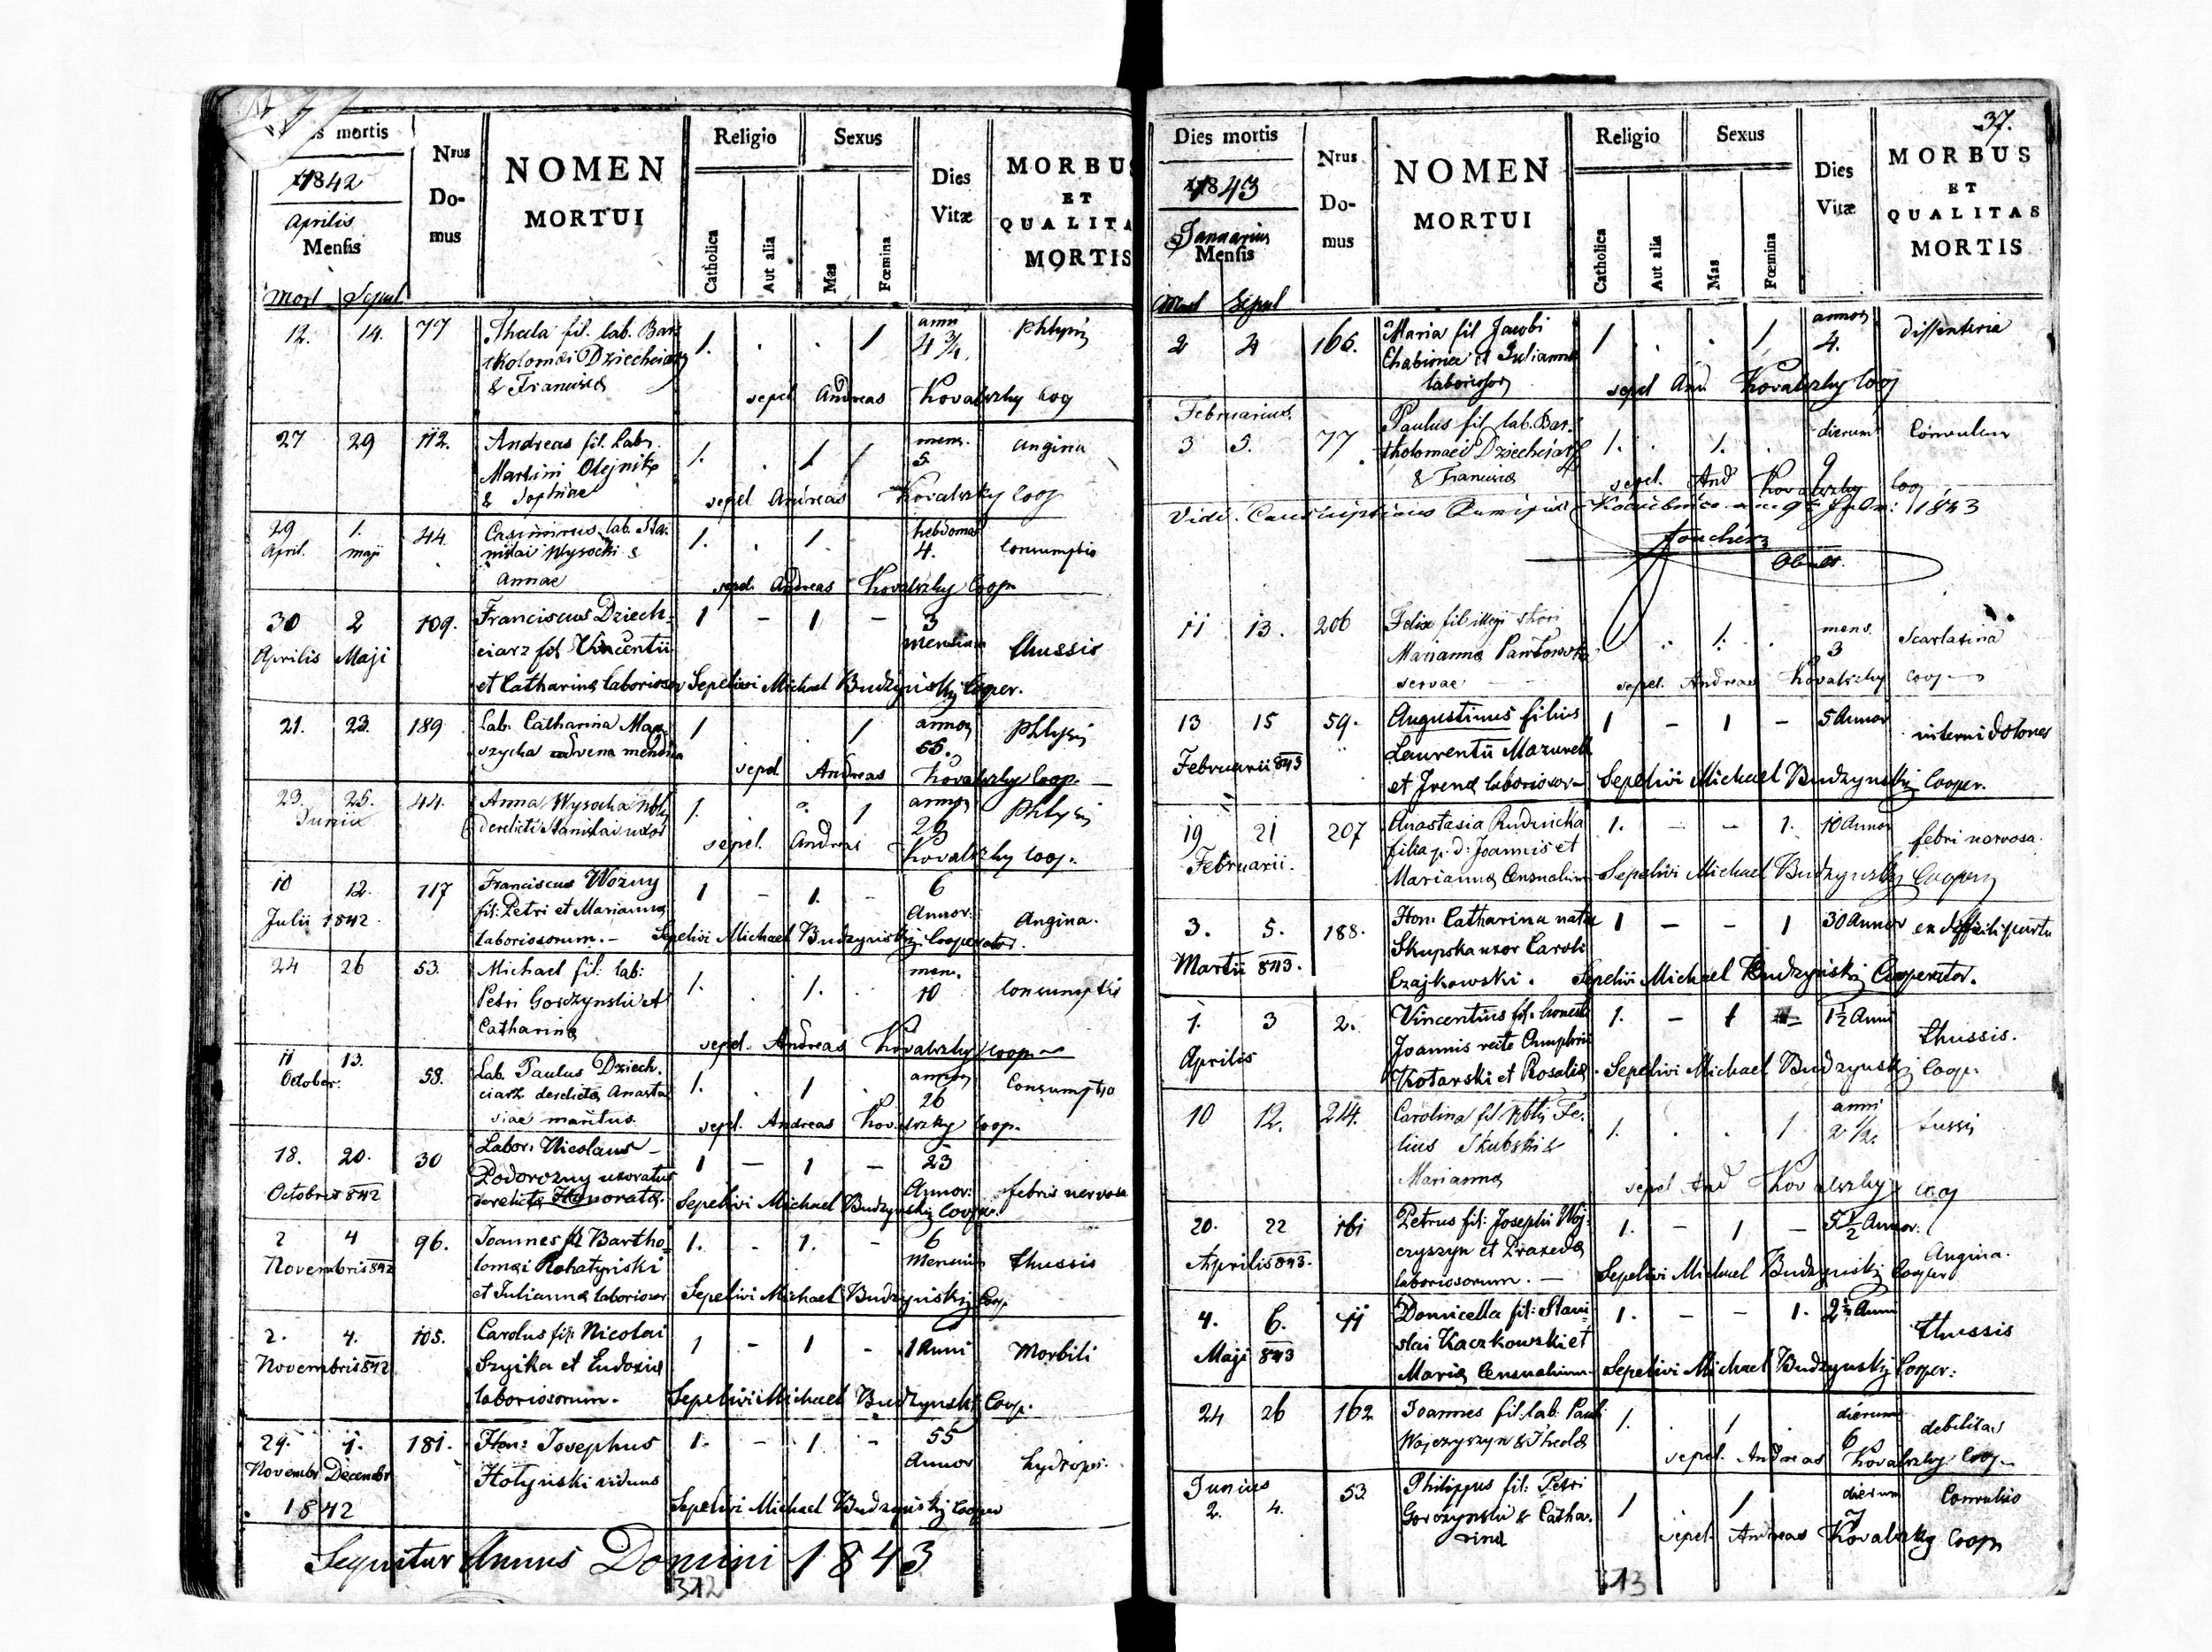 s mortis
Nrus
Domus
NOMEN
MORTUI
Religio
Sexus
Dies
Vitæ
MORBUS
ET
QUALITA
MORTIS
1842
Aprilis
Mensis
Catholica
Aut alia
Mas
Fœmina
Mort Sepul
12. 14. 77 Thecla fil. lab. Bar- 1. . . 1 anni 4 3/4. Phtysis
tholomæi Dziechciarz
& Francisca sepel Andreas Kovalszky Coop
27 29 112. Andreas fil. Lab. 1. . 1 / mens. 5. Angina
Martini Olejnik
& Sophiae sepel Andreas Kovalszky Coop
29 1. 44. Casimirus lab. Sta- 1. . 1. hebdomad 4. Consumptio
April. maji nislai Wysocki &
Annae sepel. Andreas Kovalszky Coop
30 2 109. Franciscus Dziech- 1 - 1 - 3 mensium thussis
Aprilis Maji ciarz fil Vincentii
et Catharina laboriosor Sepelivi Michael Budzynskij Cooper.
21. 23. 189 Lab. Catharina 1 . . 1 annor 55. Phtysis
szycha advena
sepel Andreas Kovalszky Coop.
23. 25. 44. Anna Wysocka 1. . 1 annor Phtysis
Junii derelicti Stanislai uxor
sepel. Andreas Kovalszky Coop.
10 12. 117 Franciscus Wozny 1 - 1. - 6 Annor: Angina.
Julii 1842. fil: Petri et Marianna
laboriosorum. - Sepelivi Michael Budzynskij Cooperator.
24 26 53. Michael fil: lab: 1. . 1. . men. 10 Consumptio
Petri Gorczynski et
Catharina sepel. Andreas Kovalszky Coop
11 13. 58. Lab. Paulus Dziech- 1. . 1 annor 26 Consumptio
October. ciarz derelicta Anasta
siae maritus. sepel. Andreas Kovalszky Coop.
18. 20. 30 Labor. Nicolaus 1 - 1 - 23 Annor: febris nervosa
Octobris 842 Podorozny uxoratus
derelicta Honorata. Sepelivi Michael Budzynskij Cooper.
2 4 96. Joannes fil Bartho- 1. - 1. - 6 Mensium thussis
Novembris 842 lomæi Rohatynski
et Julianna laborioso Sepelivi Michael Budzynskij Coop.
2. 4. 105. Carolus fil: Nicolai 1 - 1 - 1 Anni Morbili
Novembris 842 Szyika et Eudoxia
laboriosorum. Sepelivi Michael Budzynski Coop.
29. 1. 181. Hon: Josephus 1. - 1. - 55 Annor hydrops.
Novembr Decembr Hotynski viduus
1842 Sepelivi Michael Budzynskij Cooper
Sequitur Annus Domini 1843
312
37.
Dies mortis
Nrus
Domus
NOMEN
MORTUI
Religio
Sexus
Dies
Vitæ
MORBUS
ET
QUALITAS
MORTIS
1843
Januarius
Mensis
Catholica
Aut alia
Mas
Fœmina
Mort Sepul
2 4 165. Maria fil Jacobi 1 . . 1 annor 4. Dissenteria
et Julianna
laborioso sepel And. Kovalszky Coop
Februarius.
3 5. 77 Paulus fil. lab. Bar- 1. . 1. . dierum 9 Convulsio
tholomaei Dziechciarz
& Francisca sepel. And Kovalszky Coop
Vidi. 1843
11 13. 206 Felix fil illegi thori . 1. . mens. 3 Scarlatina
Marianna Pawlowska
servae sepel. Andreas Kovalszky Coop
13 15 59. Augustinus filius 1 - 1 - 5 Annor interni dolores
Februarii 843 Laurentii Mazurek
et Irena laborioso Sepelivi Michael Budzynskij Cooper.
19 21 207 Anastasia Rudnicka 1. - - 1. 10 Annor febri nervosa.
Februarii. filia p. d: Joannis et
Marianna Censualium Sepelivi Michael Budzynskij Cooper
3. 5. 188. Hon: Catharina nata 1 - - 1 30 Annor ex difficili partu
Martii 843. Skupska uxor Caroli
Czajkowski. Sepelivi Michael Budzynskij Cooperator.
1. 3 2. Vincentius fil: honesti 1. - 1 1 1/2 Anni thussis.
Aprilis Joannis recte
Kotarski et Rosalia. Sepelivi Michael Budzynskij Coop.
10 12. 214. Carolina fil Nobli Fe- 1. . . 1 anni 2 1/2. tussis
licis Skubski &
Marianna sepel And Kovalszky Coop
20. 22 161 Petrus fil: Josephi Woj- 1. - 1 - 5 1/2 Annor: Angina.
Aprilis 843. czyszyn et Praxeda
laboriosorum. - Sepelivi Michael Budzynskij Cooper
4. 6. 11 Domicella fil: Stani- 1. - 1. 2 1/2 Anni thussis
Maji 843 slai Kaczkowski et
Maria Censualium Sepelivi Michael Budzynskij Cooper:
24 26 162 Joannes fil: lab: Pauli 1. . 1 . dierum 6 debilitas
Wojczyszyn & Thecla
sepel. Andreas Kovalszky Coop
Junius
2. 4. 53. Philippus fil: Petri 1 . 1 dierum 7 Convulsio
Gorczynski & Catha-
rina sepel. Andreas Kovalszky Coop
313